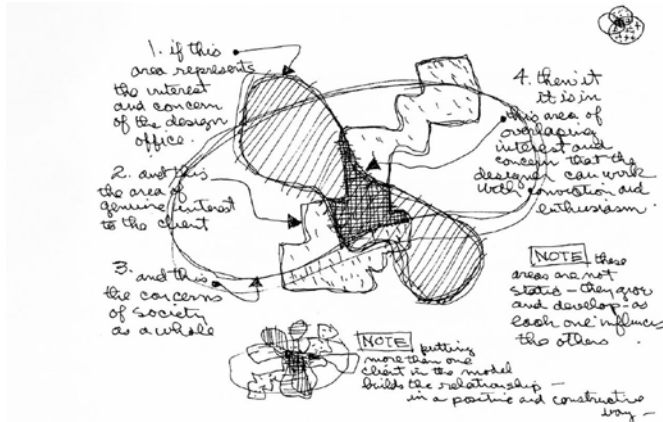 1. if this
area represents
the interest
and concern
of the design
office.
2. and this
the area of
genuine interest
to the client
3. and this
the concerns
of society
as a whole
4. then it
it is in
this area of
overlapping
interest and
concern that the
designer can work
with conviction and
enthusiasm
NOTE these
areas are not
static – they grow
and develop – as
each one influences
the others
NOTE putting
more than one
client in the model
builds the relationship –
in a positive and constructive
way –